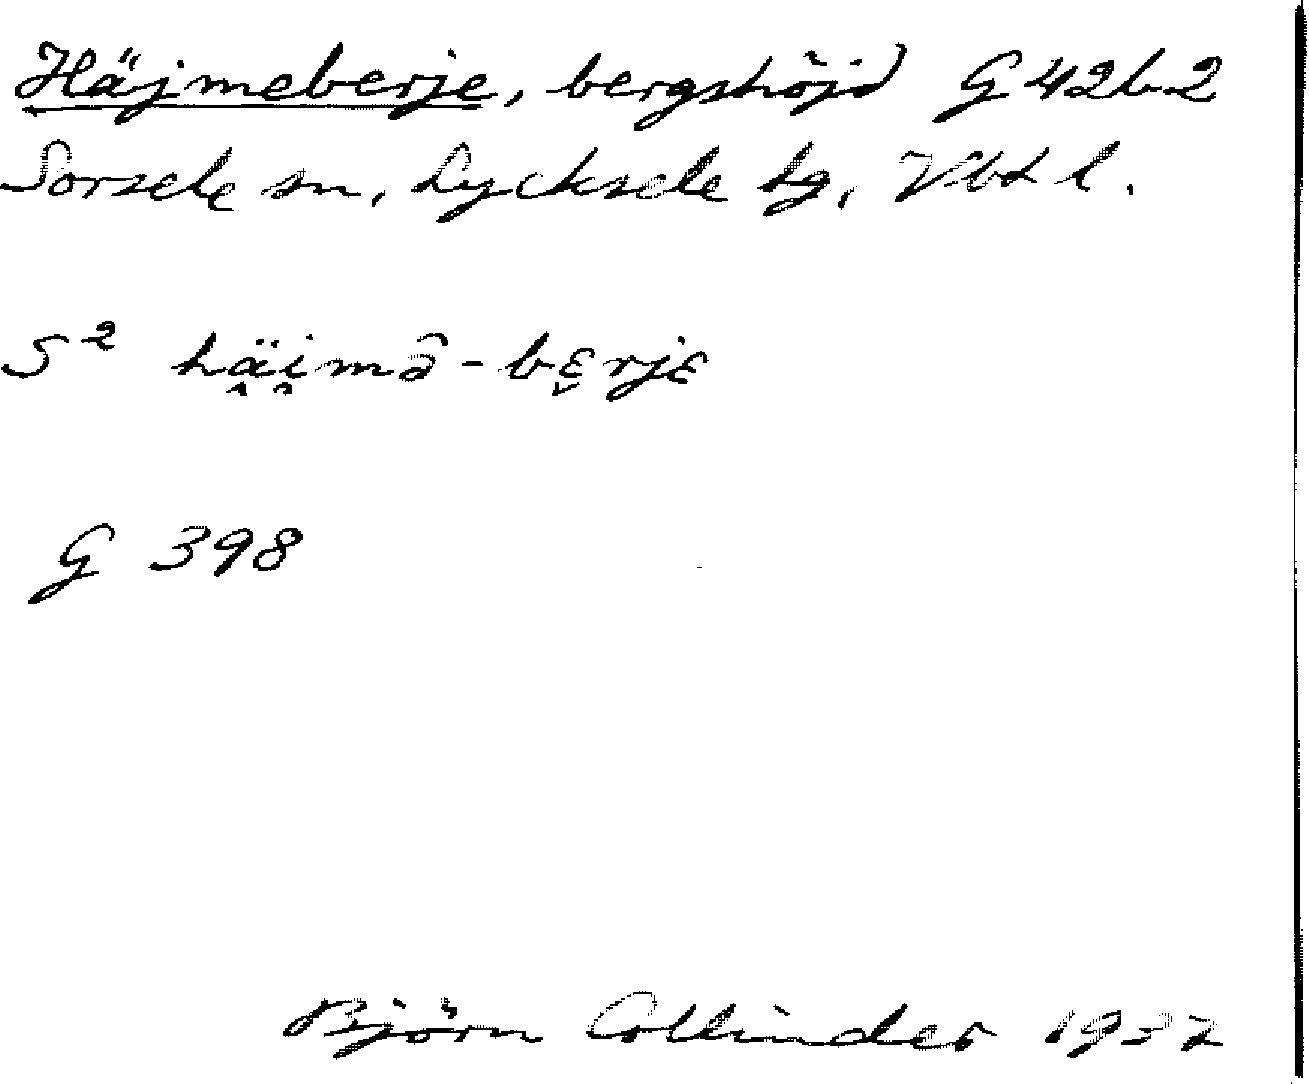 Häjmeberje, bergshöjd G 42b2
Sorsele sn, Lycksele tg, Vbtl.
S² hä̭i̯mə̂-bɛ̬rjɛ
G 398
Björn Collinder 1932